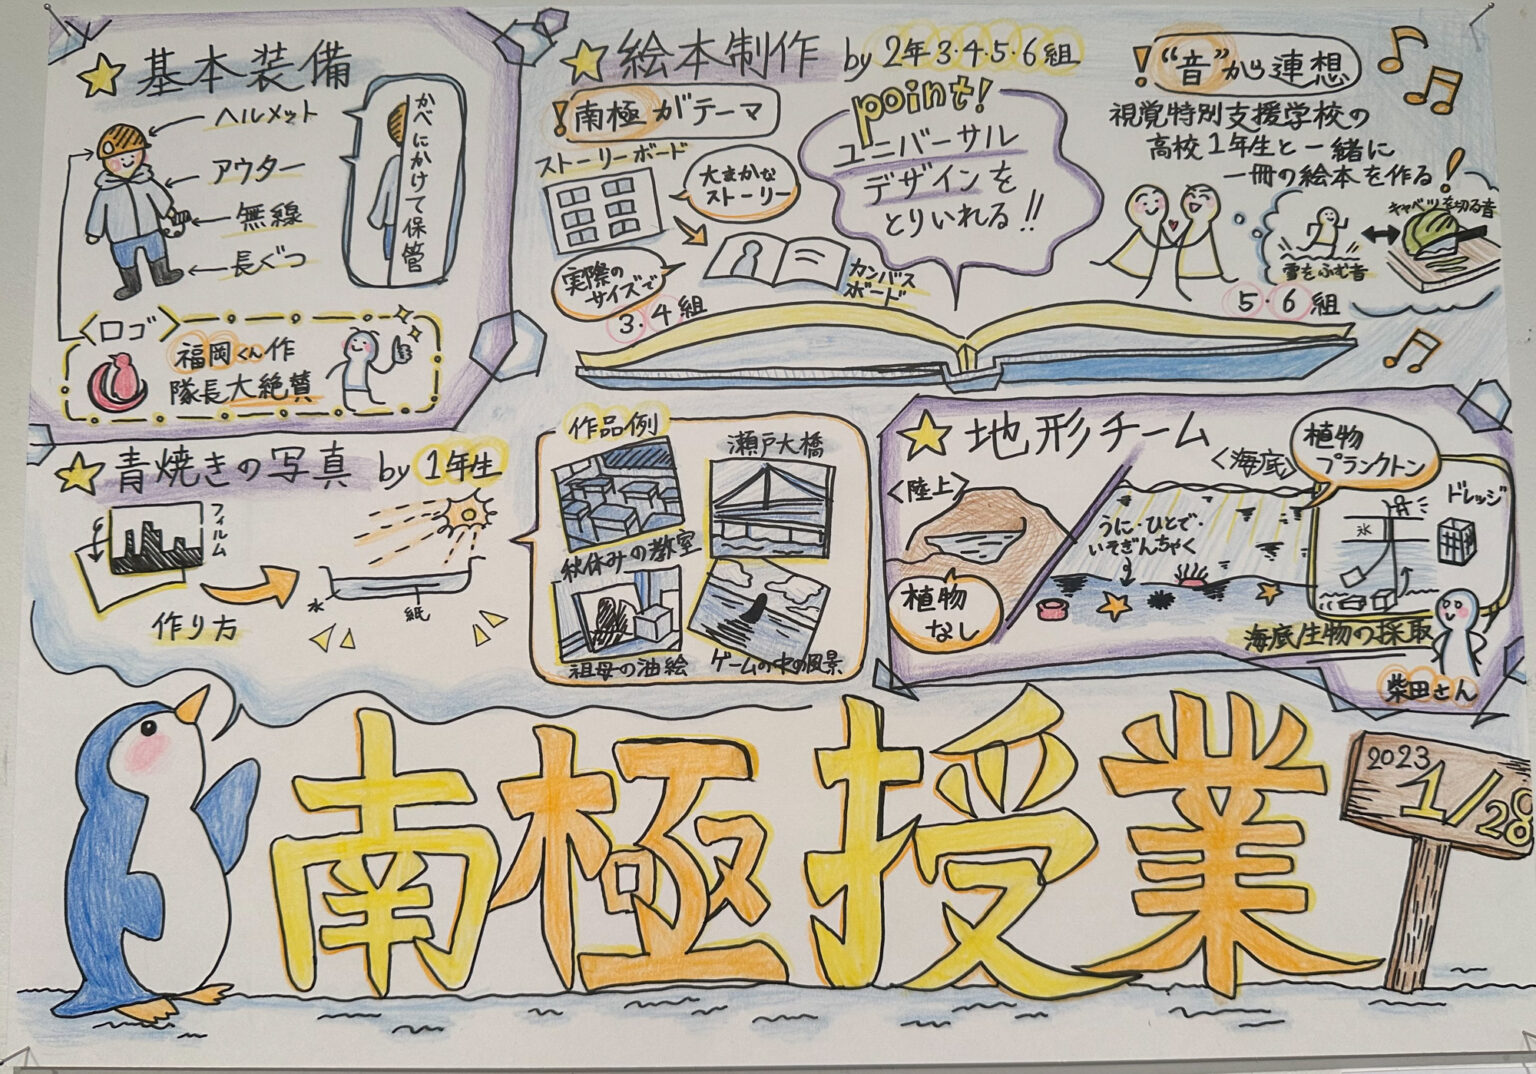 基本装備
ヘルメット
アウター
無線
長ぐつ
かべにかけて保管
<ロゴ>
福岡くん作
隊長大絶賛
絵本制作 by 2年3・4・5・6組
! 南極がテーマ
ストーリーボード
大まかな
ストーリー
実際の
サイズで
カンバス
ボード
3・4組
point!
ユニバーサル
デザインを
とりいれる!!
! “音”から連想
視覚特別支援学校の
高校1年生と一緒に
一冊の絵本を作る!
キャベツを切る音
雪をふむ音
5・6組
青焼きの写真 by 1年生
フィルム
作り方
水
紙
作品例
秋休みの教室
瀬戸大橋
祖母の油絵
ゲームの中の風景
地形チーム
<陸上>
植物
なし
<海底>
うに・ひとで・
いそぎんちゃく
植物
プランクトン
氷
ドレッジ
海底生物の採取
柴田さん
南極授業
2023
1/28